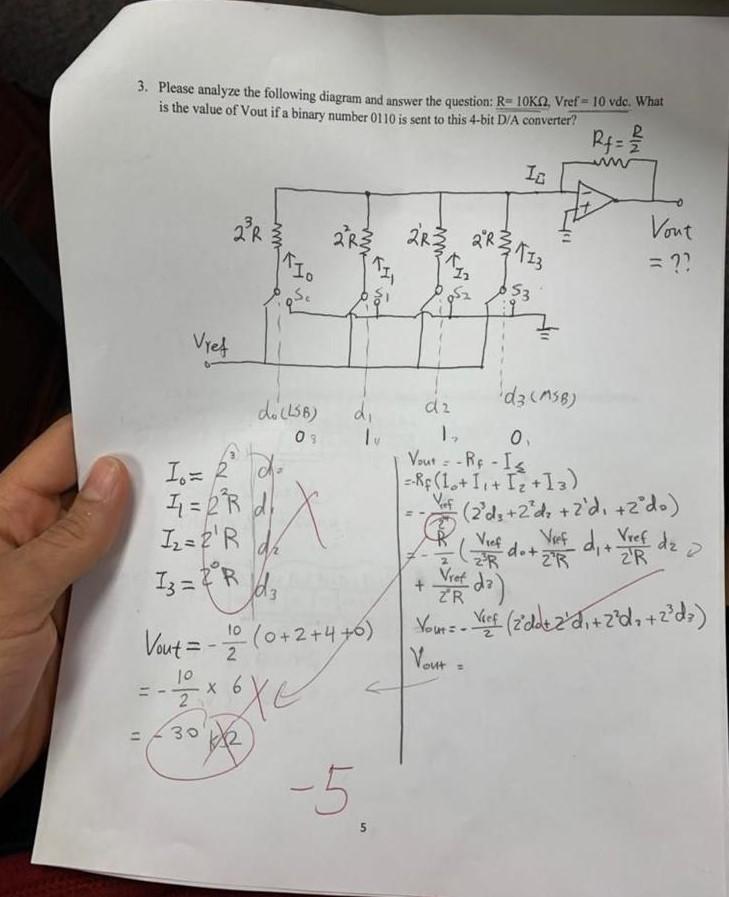 3. Please analyze the following diagram and answer the question: R= 10KΩ, Vref = 10 vdc. What
is the value of Vout if a binary number 0110 is sent to this 4-bit D/A converter?
Rf = R/2
2³R 2²R 2¹R 2⁰R
↑I₀ ↑I₁ ↑I₂ ↑I₃
S₁ S₂ S₃
Vout
= ??
Vref
d₀(LSB) d₁ d₂ d₃(MSB)
0 1 1 0
I₀ = 2³ d₀
I₁ = 2²R d₁
I₂ = 2¹R d₂
I₃ = 2⁰R d₃
Vout = - 10/2 (0+2+4+0)
= - 10/2 × 6
= -30 kΩ
Vout = -Rf - Is
= -Rf(I₀+I₁+I₂+I₃)
= - Vref/2⁴ (2³d₃+2²d₂+2¹d₁+2⁰d₀)
= - R/2 (Vref/2³R d₀ + Vref/2²R d₁ + Vref/2¹R d₂
+ Vref/2⁰R d₃)
Vout = - Vref/2 (2⁰d₀+2¹d₁+2²d₂+2³d₃)
Vout =
-5
5